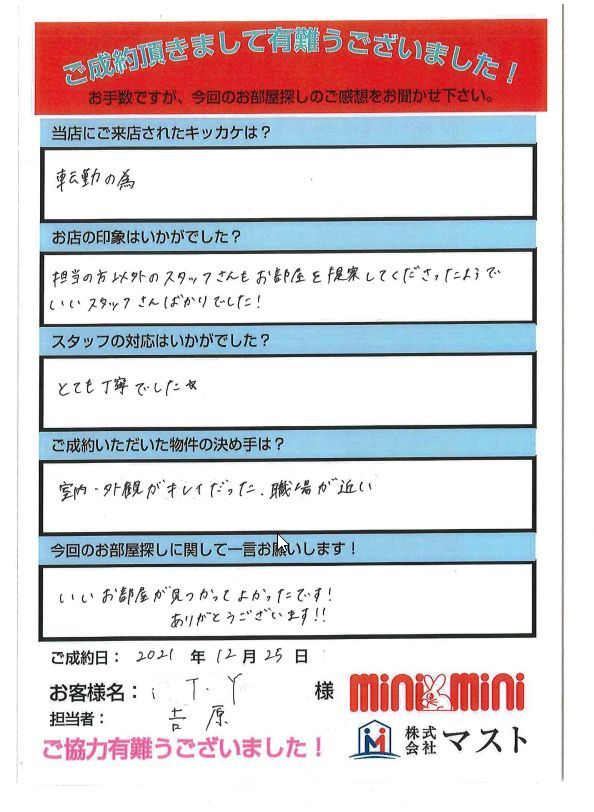 ご成約頂きまして有難うございました!
お手数ですが、今回のお部屋探しのご感想をお聞かせ下さい。
当店にご来店されたキッカケは?
転勤の為
お店の印象はいかがでした?
担当の方以外のスタッフさんもお部屋を提案してくださったようで
いいスタッフさんばかりでした!
スタッフの対応はいかがでした?
とても丁寧でした☆
ご成約いただいた物件の決め手は?
室内・外観がキレイだった、職場が近い
今回のお部屋探しに関して一言お願いします!
いいお部屋が見つかってよかったです!
ありがとうございます!!
ご成約日: 2021 年 12 月 25 日
お客様名: T.Y 様
担当者: 吉原
mini mini
株式会社 マスト
ご協力有難うございました!